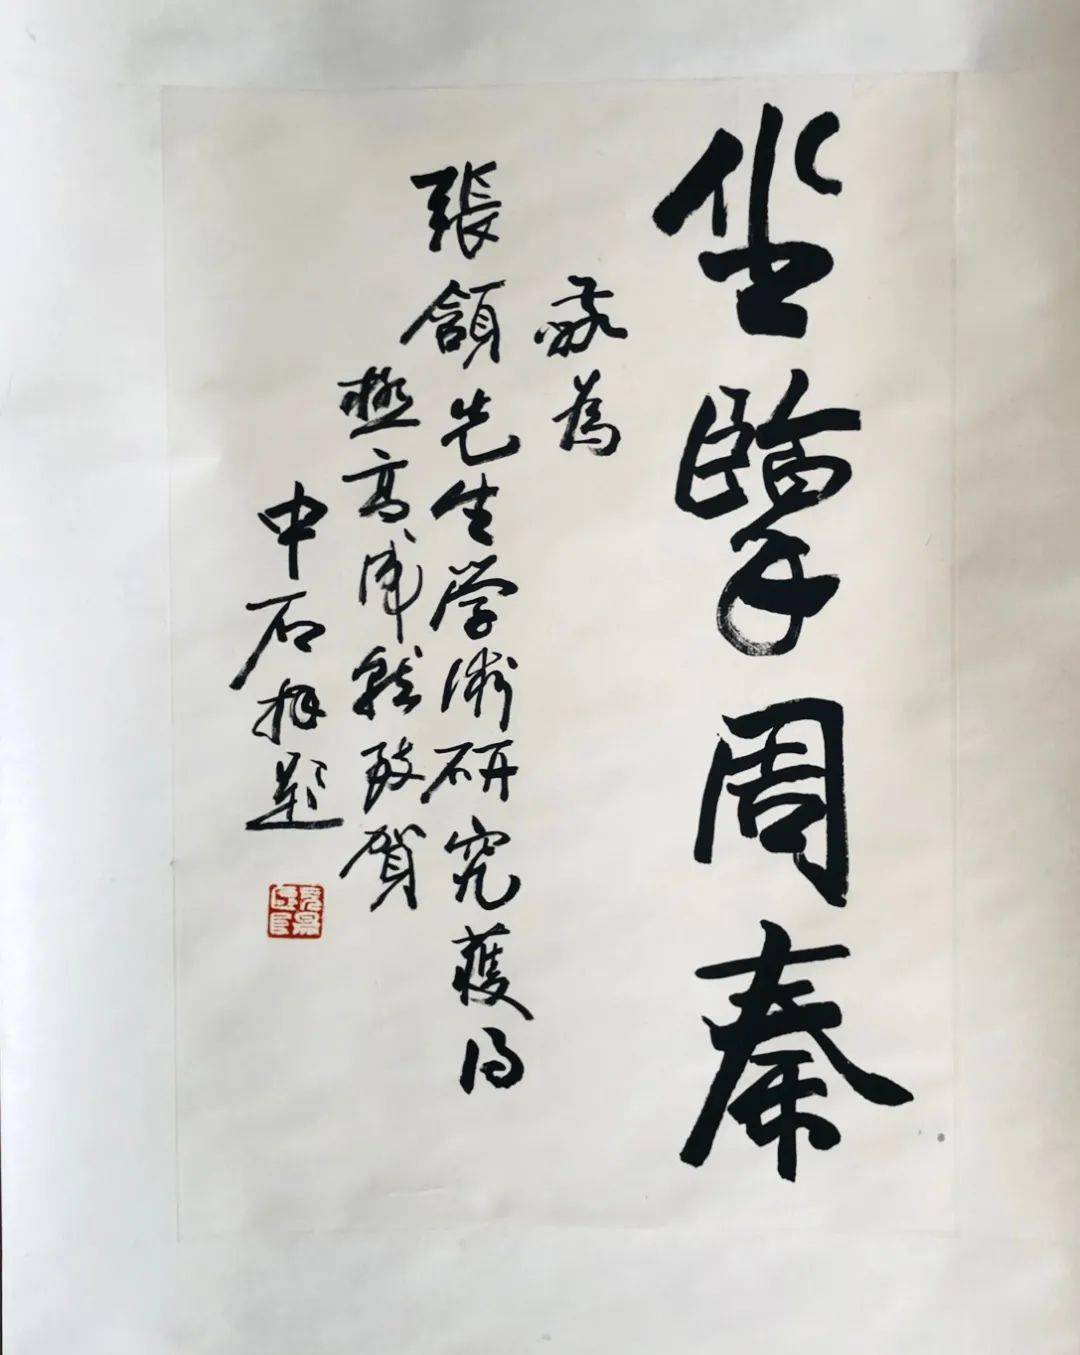 坐擥周秦
敬為
張頷先生学術研究獲得
極高成就致賀
中石拜題